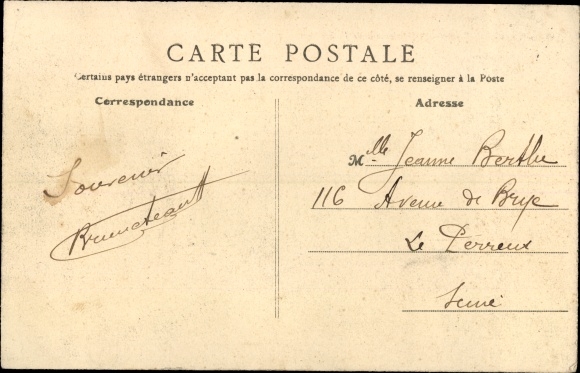 CARTE POSTALE
Certains pays étrangers n'acceptant pas la correspondance de ce côté, se renseigner à la Poste
Correspondance
Souvenir
Adresse
Mlle Jeanne Berthe
116 Avenue de Brye
Le Perreux
Seine